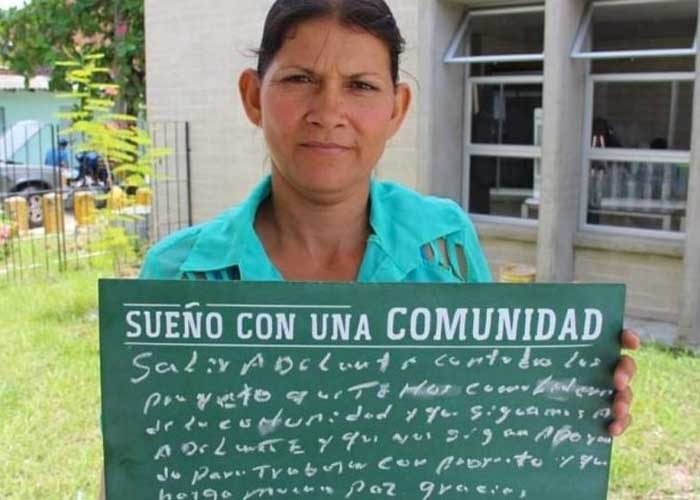 SUEÑO CON UNA COMUNIDAD
Salir ADelante con todos los
proyecto que TeNemos como lideres
de la comunidad y que sigamos A
ADelanTE y que nos sigan Apoyan
do para Trabajar con proyecto y que
haiga mucha paz. gracias